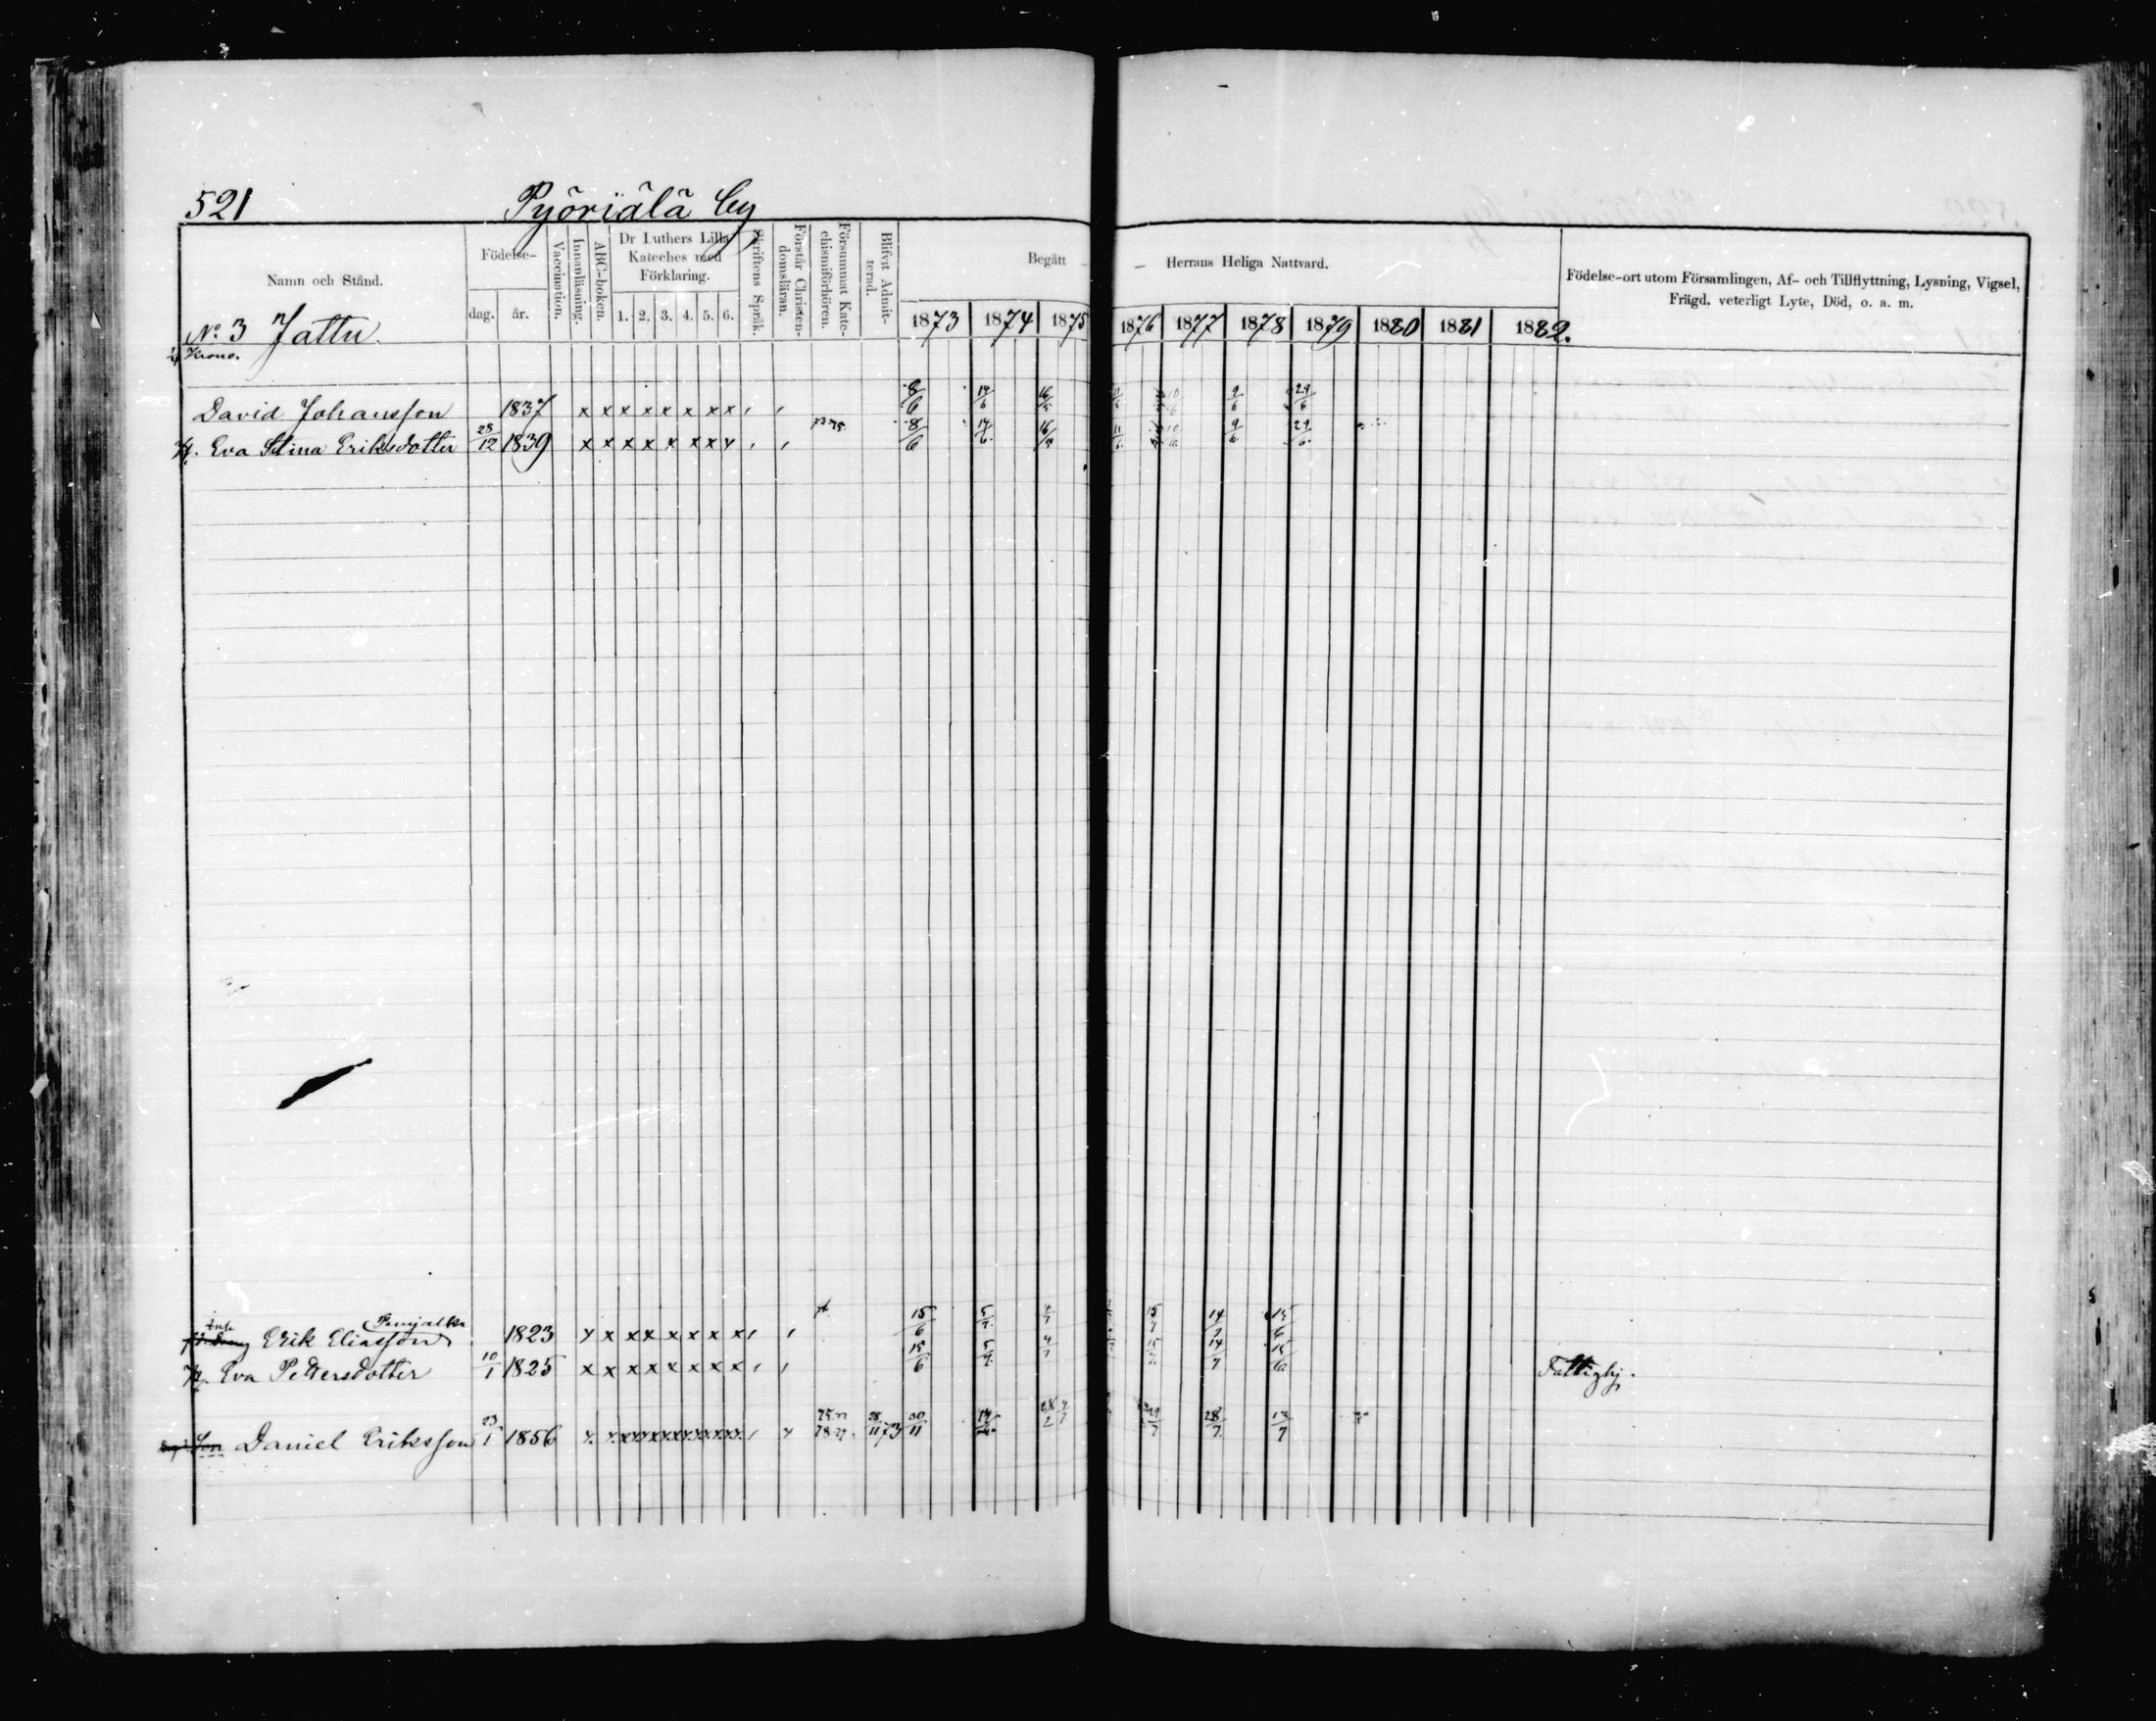 521 Pyöriälä by
Namn och Stånd.
Födelse-
dag. år.
Vaccination.
Innanläsning.
ABC-boken.
Dr Luthers Lilla Kateches med Förklaring.
1. 2. 3. 4. 5. 6.
Skriftens Språk.
Förstår Christendomsläran.
Försummat Katechismiförhören.
Blifvit Admitterad.
Begått — — Herrans Heliga Nattvard.
1873 1874 1875 1876 1877 1878 1879 1880 1881 1882.
Födelse-ort utom Församlingen, Af- och Tillflyttning, Lysning, Vigsel,
Frägd. veterligt Lyte, Död, o. a. m.
No. 3 Jattu.
Krono.
David Johansson 1837 x x x x x x x x 8/6 14/6 16/5 9/6 29/6
H. Eva Stina Eriksdotter 28/12 1839 x x x x x x x x 8/6 14/6 16/5 11/6 10/6 9/6 29/6
Inh. Erik Eliasson 1823 x x x x x x x x 15/6 5/7 4/7 15/7 14/7 15/6
H. Eva Pettersdotter 10/1 1825 x x x x x x x x 15/6 5/7 4/7 15/7 14/7 15/6 Fattighj.
Son Daniel Eriksson 23/1 1856 73 30/11 14/6 28/7 13/7